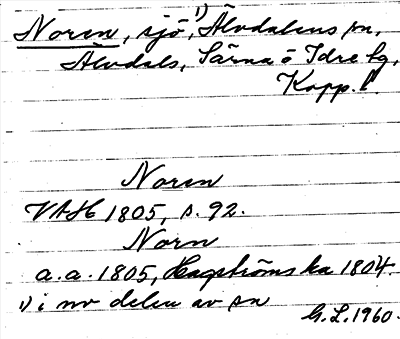 Noren, sjö,¹⁾ Älvdalens sn,
Älvdals, Särna o Idre tg,
Kopp. l.
Noren
VAH 1805, s. 92.
Norn
a. a. 1805, Hagströms ka 1804.
¹⁾ i nv delen av sn
G. L. 1960.